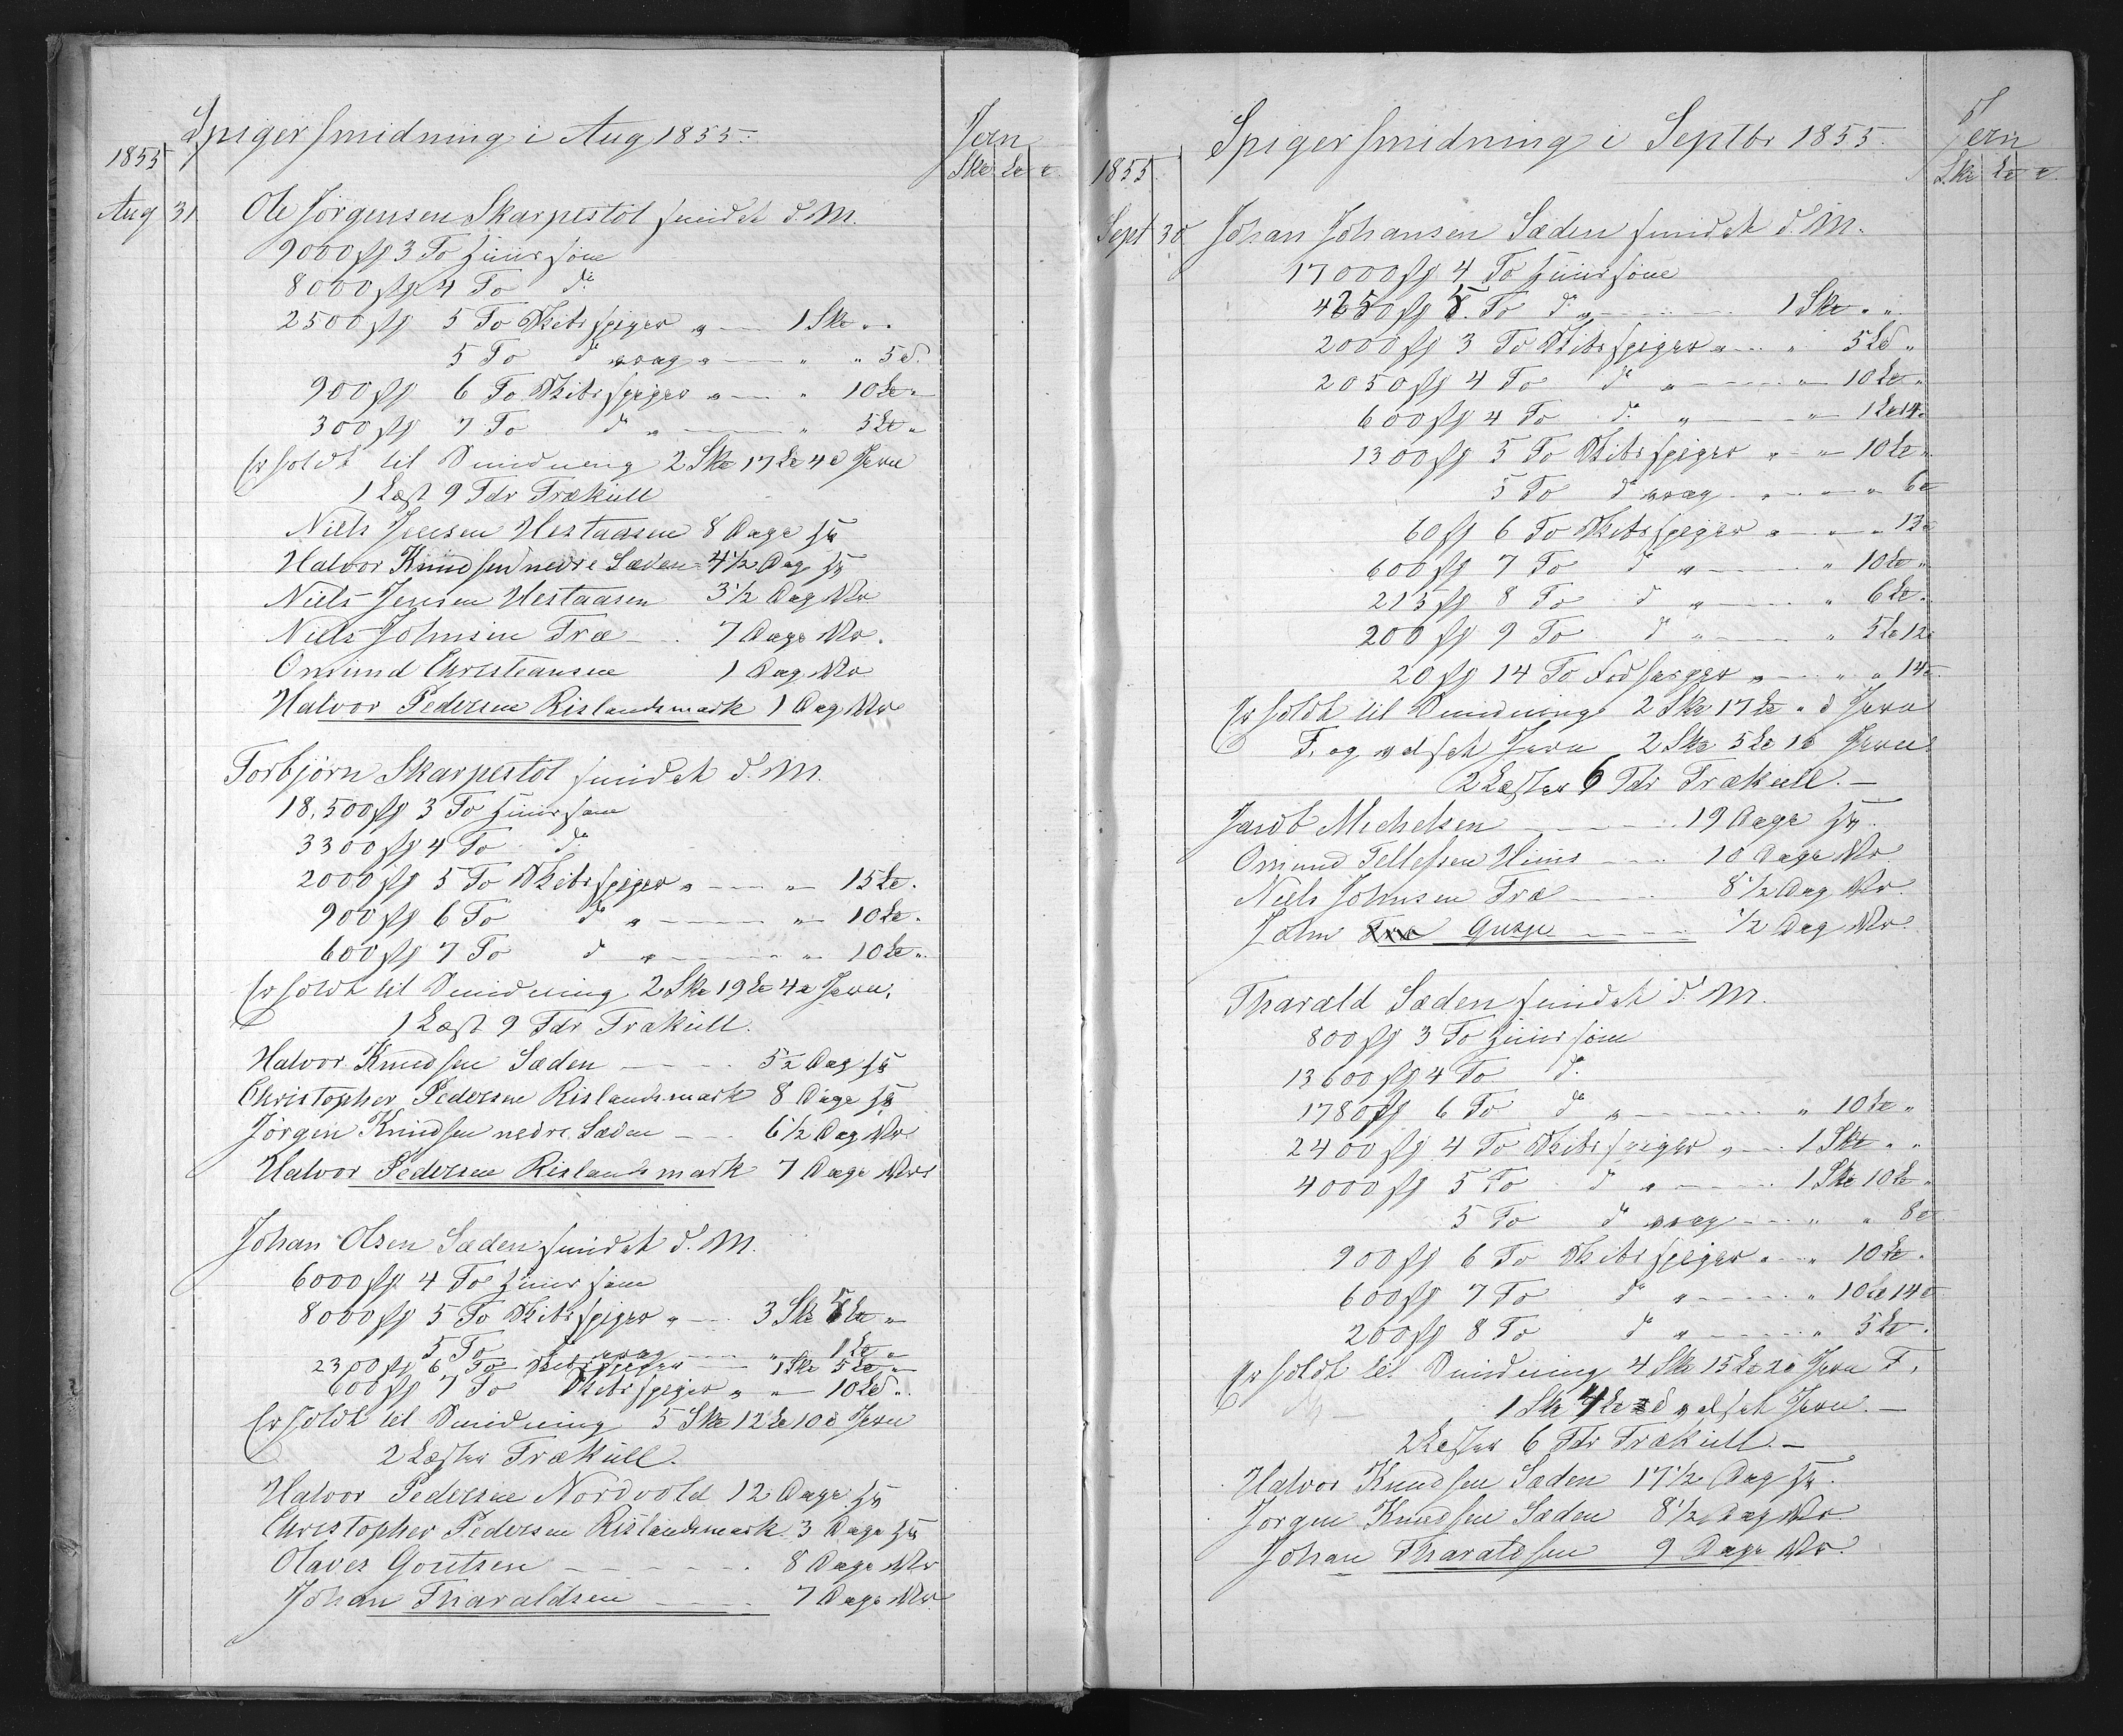 Spigersmidning i Aug 1855. Jern
1855 Sk℔ L℔ ℔
Aug 31 Ole Jørgensen Skarpestöl smidet d. M.
9000 st 3 To Huussøm
8000 st 4 To do
2500 st 5 To Skibsspiger " 1 Sk℔ " "
5 To do vrag " " " 5 ℔
900 st 6 To Skibsspiger " " 10 L℔ "
300 st 7 To do " " 5 L℔ "
Erholdt til Smidning 2 Sk℔ 17 L℔ 4 ℔ Jern
1 Læst 9 Tdr Trækull
Niels Jensen Hestaasen 8 Dage
Halvor Knudsen nedre Sæden 4½ Dag
Niels Jensen Hestaasen 3½ Dag
Niels Johnsen Træ 7 Dage
Omund Christiansen 1 Dag
Halvor Pedersen Rislandsmark 1 Dag
Torbjørn Skarpestöl smidet d. M.
18,500 st 3 To Huussøm
3300 st 4 To do
2000 st 5 To Skibsspiger " " 15 L℔.
900 st 6 To do " " 10 L℔.
600 st 7 To do " " 10 L℔ "
Erholdt til Smidning 2 Sk℔ 19 L℔ 4 ℔ Jern.
1 Læst 9 Tdr Trækull.
Halvor Knudsen Sæden 5½ Dag
Christopher Pedersen Rislandsmark 8 Dage
Jørgen Knudsen nedre Sæden 6½ Dag
Halvor Pedersen Rislandsmark 7 Dage
Johan Olsen Sæden smidet d. M.
6000 st 4 To Huussøm
8000 st 5 To Skibsspiger " 3 Sk℔ 5 L℔ "
5 To do vrag " 1 L℔ "
2300 st 6 To Skibsspiger 1 Sk℔ 5 L℔ "
600 st 7 To Skibsspiger " " 10 L℔ "
Erholdt til Smidning 5 Sk℔ 12 L℔ 10 ℔ Jern
2 Læster Trækull.
Halvor Pedersen Nordvold 12 Dage
Christopher Pedersen Rislandsmark 3 Dage
Olaves Goutsen 8 Dage
Johan Tharaldsen 7 Dage
Spigersmidning i Septbr 1855. Jern
1855. Sk℔ L℔ ℔
Sept 30 Johan Johansen Sæden smidet d. M.
17000 st 4 To Huussøm
4250 st 5 To do " 1 Sk℔ " "
2000 st 3 To Skibsspiger " " 5 L℔ "
2050 st 4 To do " " 10 L℔ "
600 st 4 To do " " 1 L℔ 14 ℔
1300 st 5 To Skibsspiger " " 10 L℔ "
5 To do vrag " " " 6 ℔
60 st 6 To Skibsspiger " " " 13 ℔
600 st 7 To do " " 10 L℔ "
215 st 8 To do " " 6 L℔ "
200 st 9 To do " " 5 L℔ 12 ℔
20 st 14 To " " " 14 ℔
Erholdt til Smidning 2 Sk℔ 17 L℔ " ℔ Jern
F. og valset Jern 2 Sk℔ 5 L℔ 1 ℔ Jern
2 Læster 6 Tdr Trækull. —
Jacob Michelsen 19 Dage
Omund Tellefsen Hiim 10 Dage
Niels Johnsen Træ 8½ Dag
John Gusje ½ Dag
Tharald Sæden smidet d. M.
800 st 3 To Huussøm
13600 st 4 To do
1780 st 6 To do " " 10 L℔ "
2400 st 4 To Skibsspiger " 1 Sk℔ " "
4000 st 5 To do " 1 Sk℔ 10 L℔ "
5 To do vrag " " 8 ℔
900 st 6 To Skibsspiger " " 10 L℔.
600 st 7 To do " " 10 L℔ 14 ℔
200 st 8 To do " " 5 L℔.
Erholdt til Smidning 4 Sk℔ 15 L℔ 2 ℔ Jern F.
1 Sk℔ 4 L℔ ℔ valset Jern. —
2 Læster 6 Tdr Trækull. —
Halvor Knudsen Sæden 17½ Dag
Jørgen Knudsen Sæden 8½ Dag
Johan Tharaldsen 9 Dage